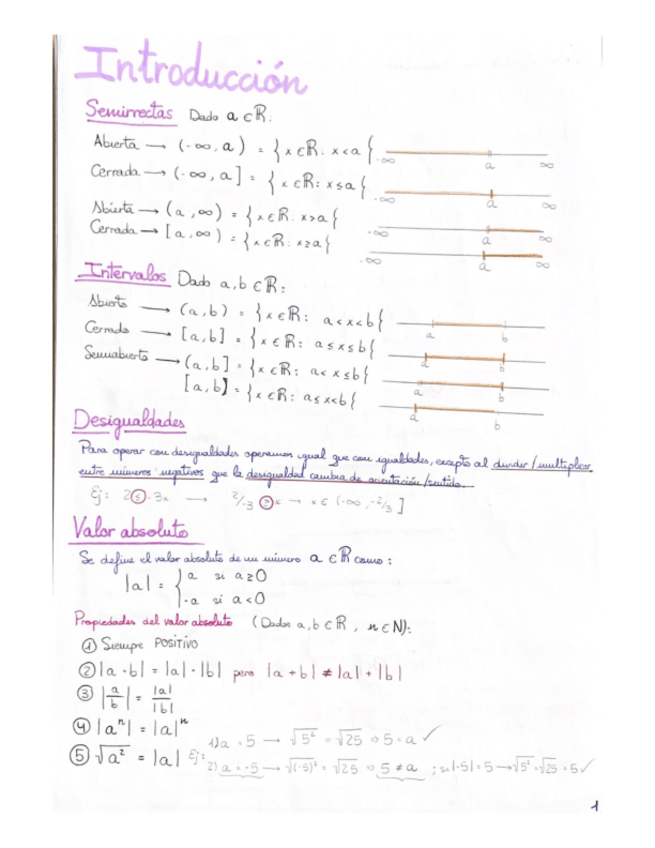 Introducción
Semirrectas Dado a ∈ ℝ:
Abierta → (-∞, a) = {x ∈ ℝ: x < a{
-∞ a ∞
Cerrada → (-∞, a] = {x ∈ ℝ: x ≤ a{
-∞ a ∞
Abierta → (a, ∞) = {x ∈ ℝ: x > a{
-∞ a ∞
Cerrada → [a, ∞) = {x ∈ ℝ: x ≥ a{
-∞ a ∞
Intervalos Dado a, b ∈ ℝ:
Abierto → (a, b) = {x ∈ ℝ: a < x < b{
a b
Cerrado → [a, b] = {x ∈ ℝ: a ≤ x ≤ b{
a b
Semiabierto → (a, b] = {x ∈ ℝ: a < x ≤ b{
a b
[a, b) = {x ∈ ℝ: a ≤ x < b{
a b
Desigualdades
Para operar con desigualdades operamos igual que con igualdades, excepto al dividir/multiplicar
entre números negativos que la desigualdad cambia de orientación/sentido.
Ej: 2 ≤ -3x → 2/-3 ≥ x → x ∈ (-∞, -2/3]
Valor absoluto
Se define el valor absoluto de un número a ∈ ℝ como:
|a| = { a si a ≥ 0
-a si a < 0
Propiedades del valor absoluto (Dados a, b ∈ ℝ, n ∈ N):
① Siempre POSITIVO
② |a · b| = |a| · |b| pero |a + b| ≠ |a| + |b|
③ |a/b| = |a|/|b|
④ |aⁿ| = |a|ⁿ
⑤ √a² = |a| Ej: 1) a = 5 → √5² = √25 ⇒ 5 = a ✓
2) a = -5 → √(-5)² = √25 ⇒ 5 ≠ a ; si |-5| = 5 → √5² = √25 = 5 ✓
1